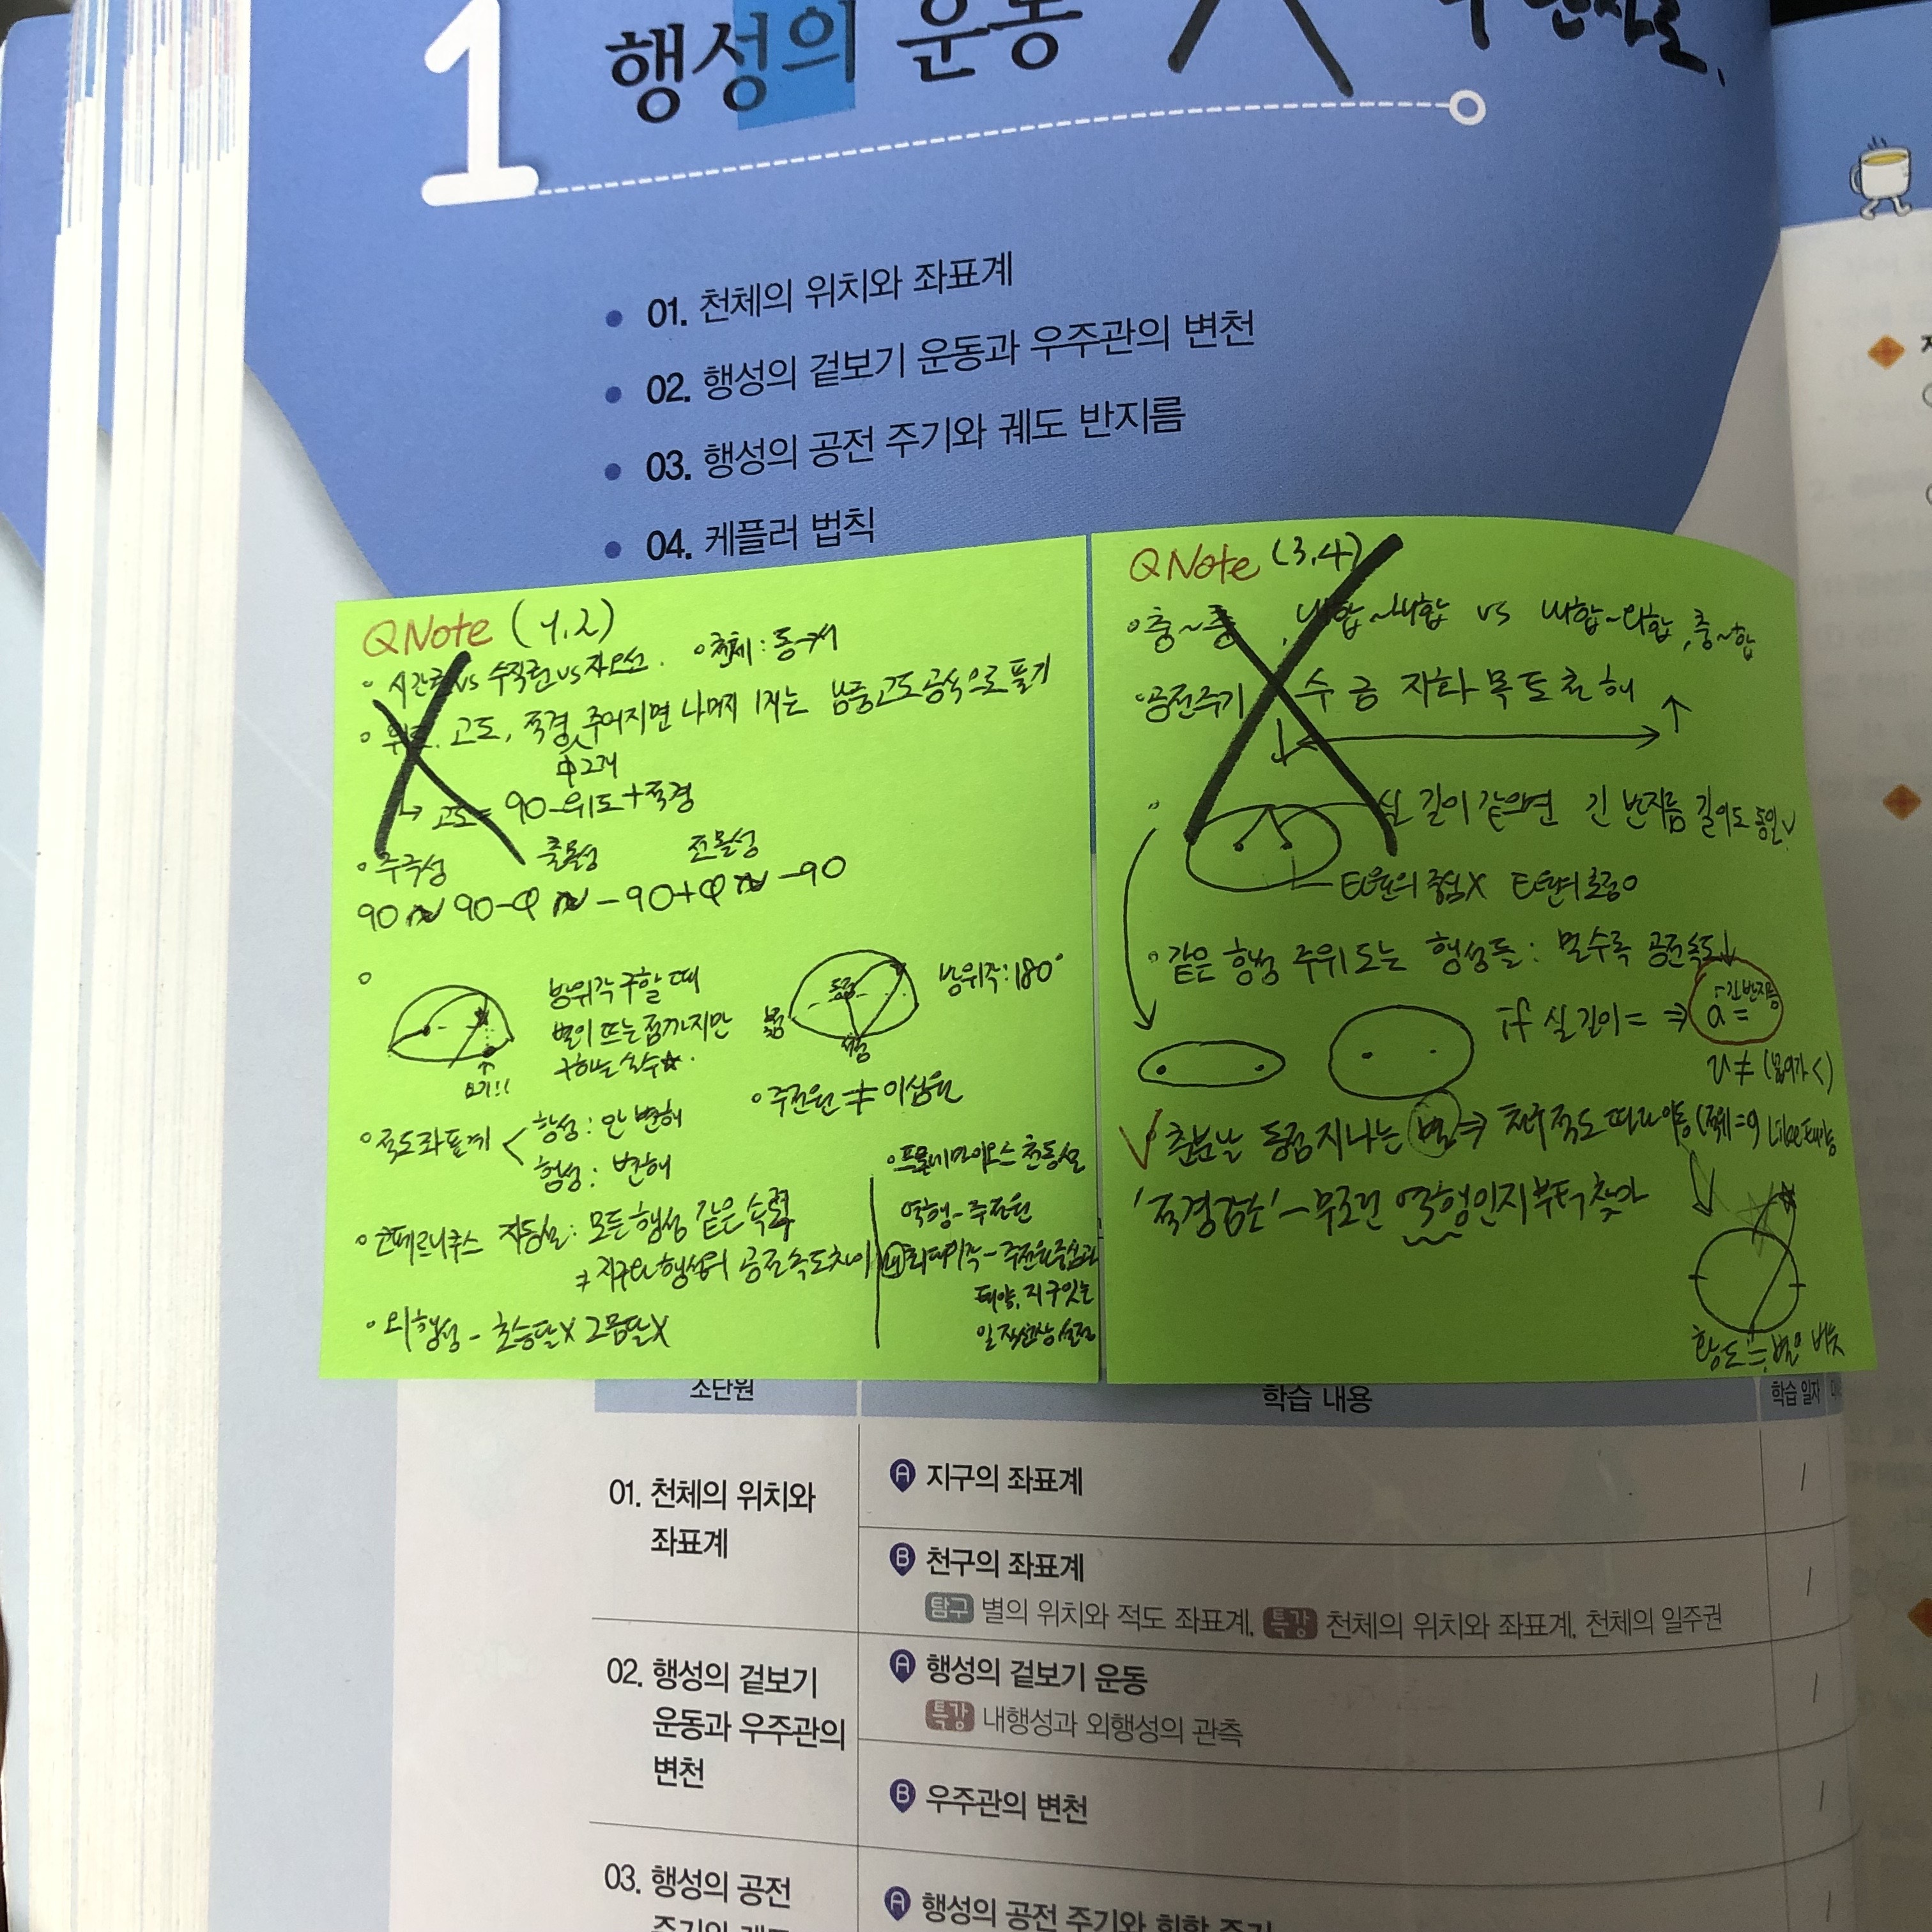 1 행성의 운동
01. 천체의 위치와 좌표계
02. 행성의 겉보기 운동과 우주관의 변천
03. 행성의 공전 주기와 궤도 반지름
04. 케플러 법칙
QNote (1,2)
시간권 vs 수직권 vs 자오선. 천체 : 동→서
위도, 고도, 적경 주어지면 나머지 1개는 남중고도 공식으로 풀기
中 2개
→ 고도 = 90-위도+적경
주극성 출몰성 전몰성
90 ~ 90-φ ~ -90+φ ~ -90
방위각 구할 때
별이 뜨는 점까지만
구하는 실수☆.
여기!!
동점
북점
서점
방위각:180°
주전원 ≠ 이심원
적도좌표계 < 항성 : 안 변해
행성 : 변해
코페르니쿠스 지동설 : 모든 행성 같은 속력
≠ 지구와 행성의 공전속도차이
외행성 - 초승달X 그믐달X
프톨레마이오스 천동설
역행-주전원
최대이각-주전원중심과
태양, 지구 있는
일직선상 설정
QNote (3,4)
충~충, 내합~내합 vs 내합~외합, 충~합
공전주기 수 금 지 화 목 토 천 해
실 길이 같으면 긴 반지름 길이도 동일
타원의 중심X 타원의 초점O
같은 행성 주위 도는 행성들 : 멀수록 공전속도↓
if 실길이 = ⇒ a =
긴반지름
v ≠
춘분날 동점 지나는 별 ⇒ 천구 적도 따라 이동
'적경감소' - 무조건 역행인지부터 찾아
황도
소단원 학습 내용 학습 일자
01. 천체의 위치와
좌표계
A 지구의 좌표계
B 천구의 좌표계
탐구 별의 위치와 적도 좌표계, 특강 천체의 위치와 좌표계, 천체의 일주권
02. 행성의 겉보기
운동과 우주관의
변천
A 행성의 겉보기 운동
특강 내행성과 외행성의 관측
B 우주관의 변천
03. 행성의 공전
A 행성의 공전 주기와 회합 주기